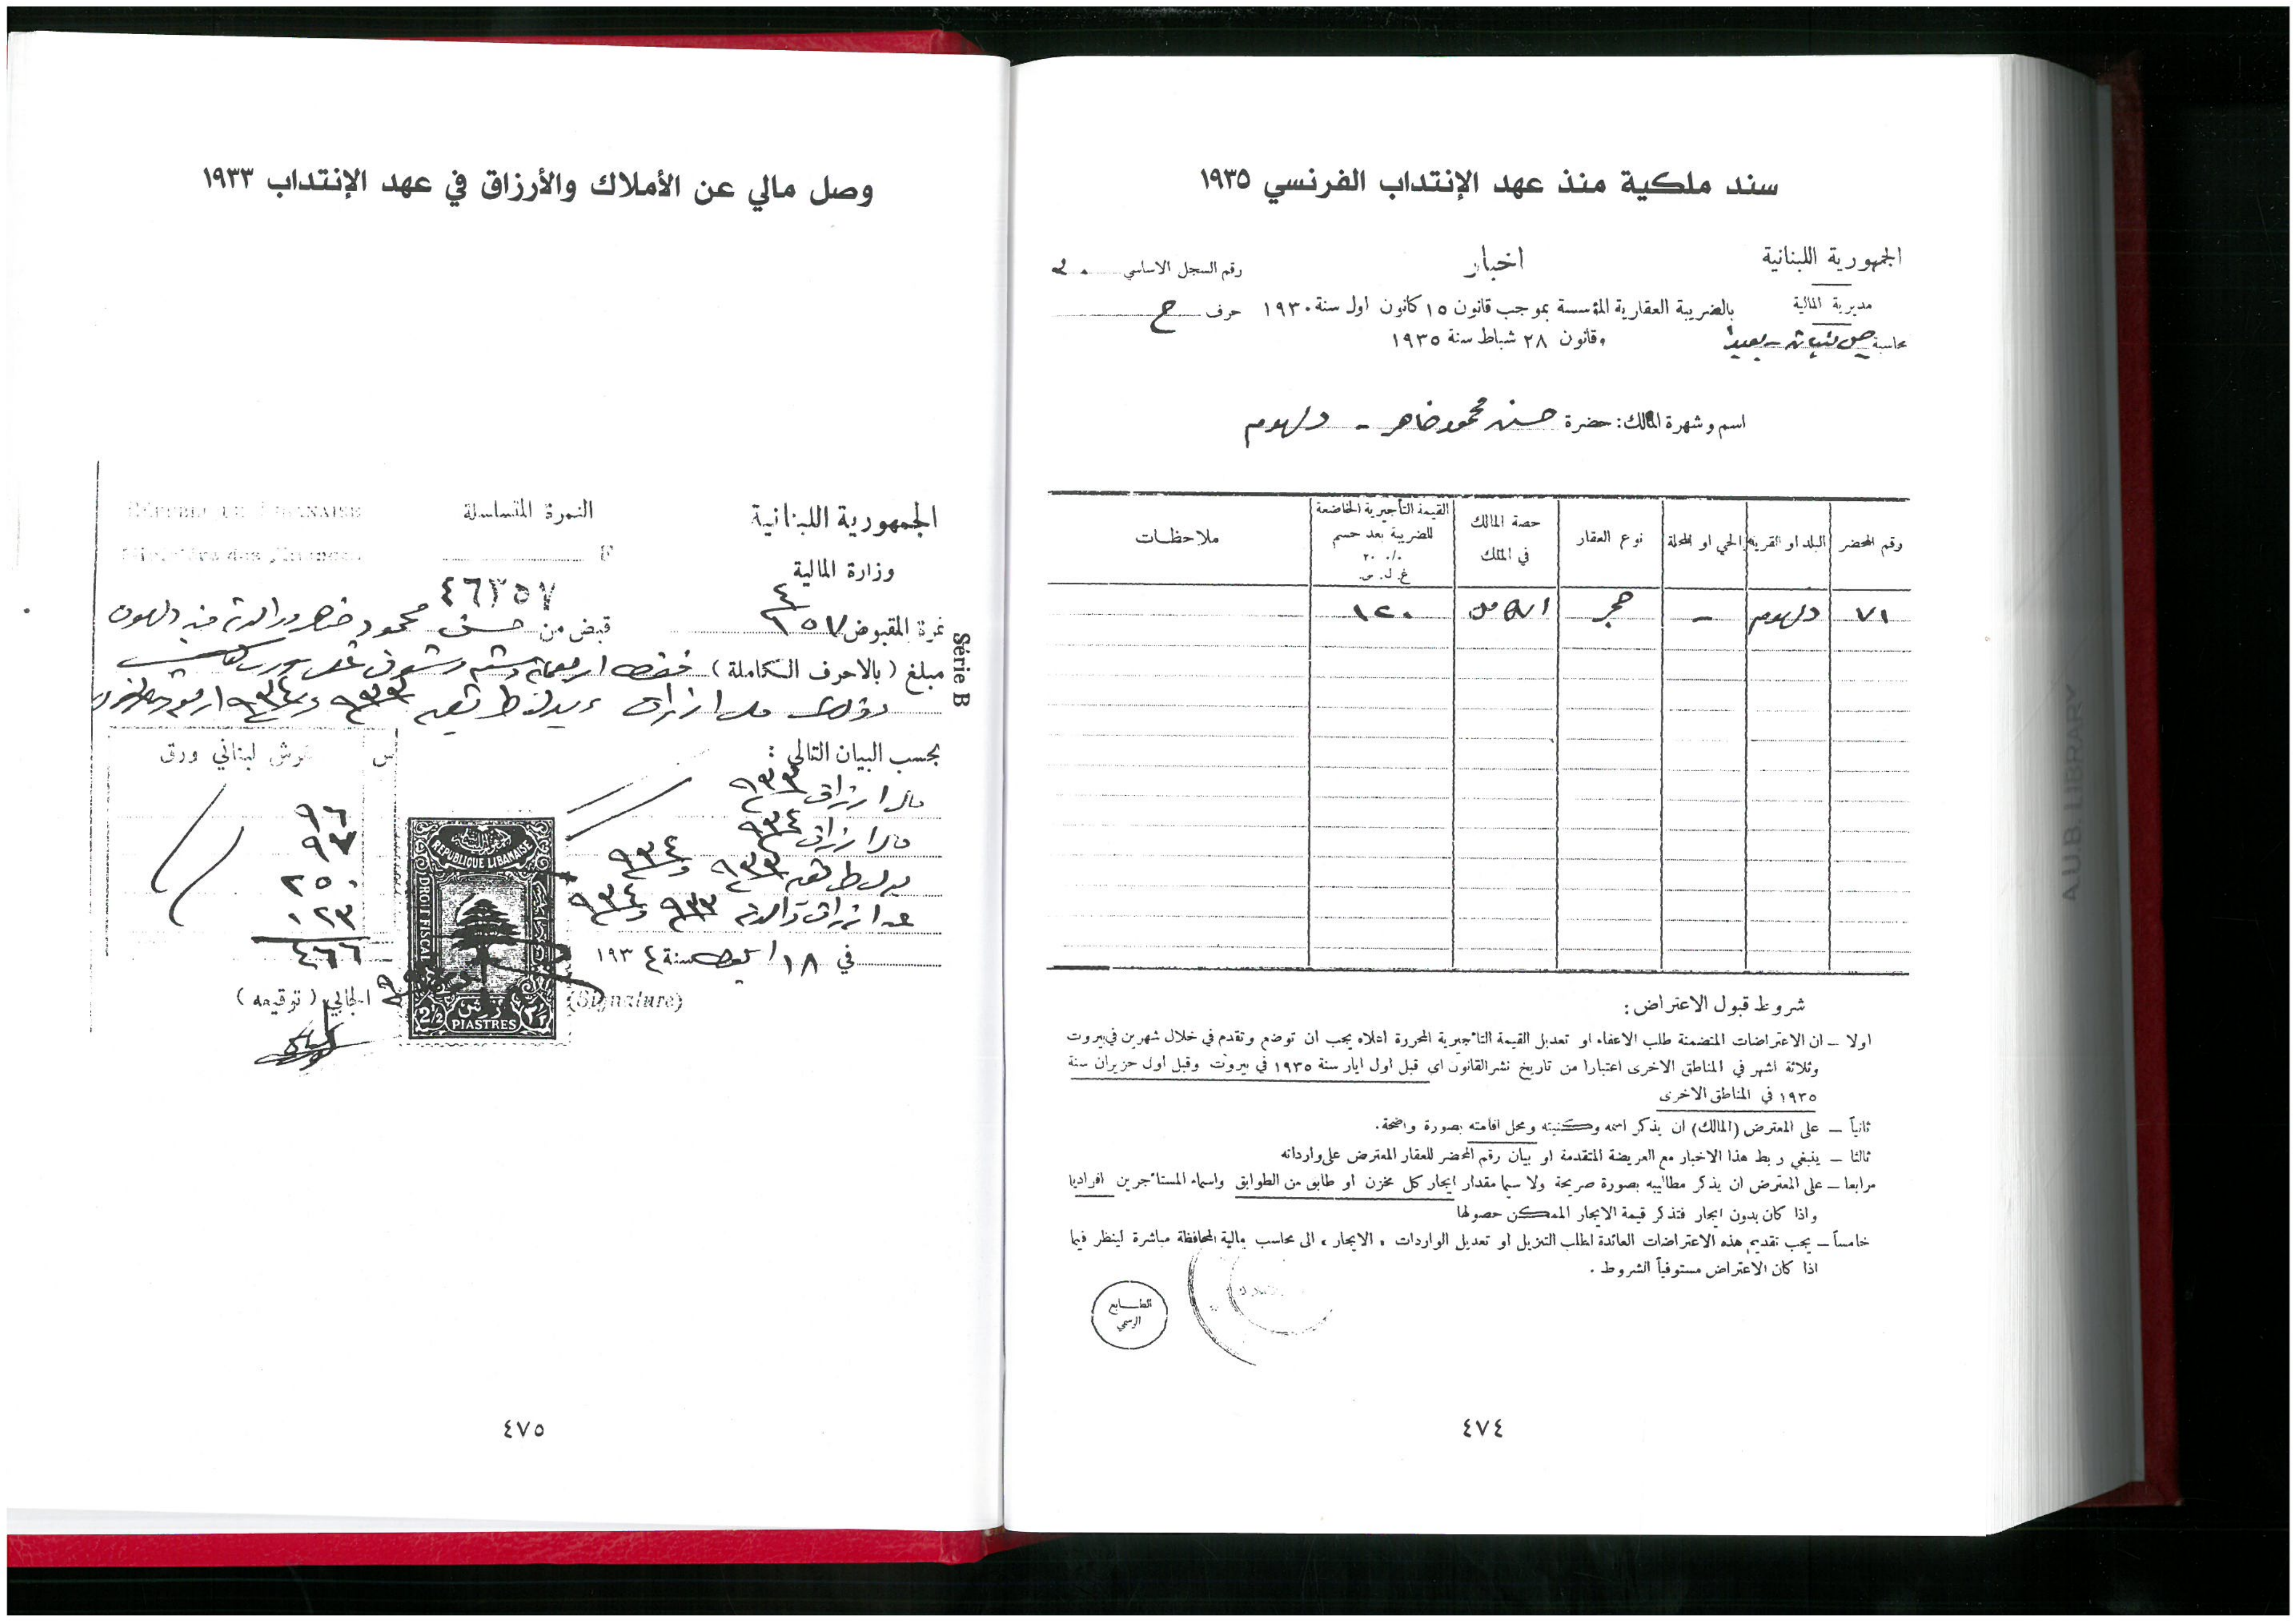 سند ملكية منذ عهد الإنتداب الفرنسي ١٩٣٥
الجمهورية اللبنانية
مديرية المالية
محاسبة
اخبار
بالضريبة العقارية المؤسسة بموجب قانون ١٥ كانون اول سنة ١٩٣٠
وقانون ٢٨ شباط سنة ١٩٣٥
رقم السجل الاساسي
حرف ح
اسم وشهرة المالك: حضرة حسن محمود ضاهر - دلهوم
رقم المحضر | البلد او القرية | الحي او المحلة | نوع العقار | حصة المالك في الملك | القيمة التأجيرية الخاضعة للضريبة بعد حسم ٢٠ ٪ غ. ل. س. | ملاحظات
٧١ | دلهوم | - | حجر | الكامل | ١٢٠
شروط قبول الاعتراض:
اولا – ان الاعتراضات المتضمنة طلب الاعفاء او تعديل القيمة التأجيرية المحررة اعلاه يجب ان توضع وتقدم في خلال شهرين في بيروت
وثلاثة اشهر في المناطق الاخرى اعتبارا من تاريخ نشر القانون اي قبل اول ايار سنة ١٩٣٥ في بيروت وقبل اول حزيران سنة
١٩٣٥ في المناطق الاخرى
ثانياً – على المعترض (المالك) ان يذكر اسمه وكنيته ومحل اقامته بصورة واضحة.
ثالثا – ينبغي ربط هذا الاخبار مع العريضة المتقدمة او بيان رقم المحضر للعقار المعترض على وارداته
رابعا – على المعترض ان يذكر مطاليبه بصورة صريحة ولا سيما مقدار ايجار كل مخزن او طابق من الطوابق واسماء المستأجرين افراديا
واذا كان بدون ايجار فتذكر قيمة الايجار الممكن حصولها
خامساً – يجب تقديم هذه الاعتراضات العائدة لطلب التنزيل او تعديل الواردات ، الايجار ، الى محاسب مالية المحافظة مباشرة لينظر فيها
اذا كان الاعتراض مستوفياً الشروط .
الطابع
الرسمي
٤٧٤
A.U.B. LIBRARY
وصل مالي عن الأملاك والأرزاق في عهد الإنتداب ١٩٣٣
الجمهورية اللبنانية
وزارة المالية
النمرة المتسلسلة
٤٦٣٥٧
REPUBLIQUE LIBANAISE
Ministère des Finances
Série B
نمرة المقبوض
قبض من حسن محمود ضاهر
مبلغ (بالاحرف الكاملة) فقط
بحسب البيان التالي:
غرش لبناني ورق
س
مال ارزاق ٩٣٣
مال ارزاق ٩٣٤
بدل طريق ٩٣٣ و ٩٣٤
عن ارزاق والدته ٩٣٣ و ٩٣٤
٩٦
٩٧
٢٥٠
٠٢٣
٤٦٦
في ١٨ سنة ١٩٣٤
الجابي (توقيعه)
(Signature)
REPUBLIQUE LIBANAISE
DROIT FISCAL
2½ PIASTRES
٤٧٥